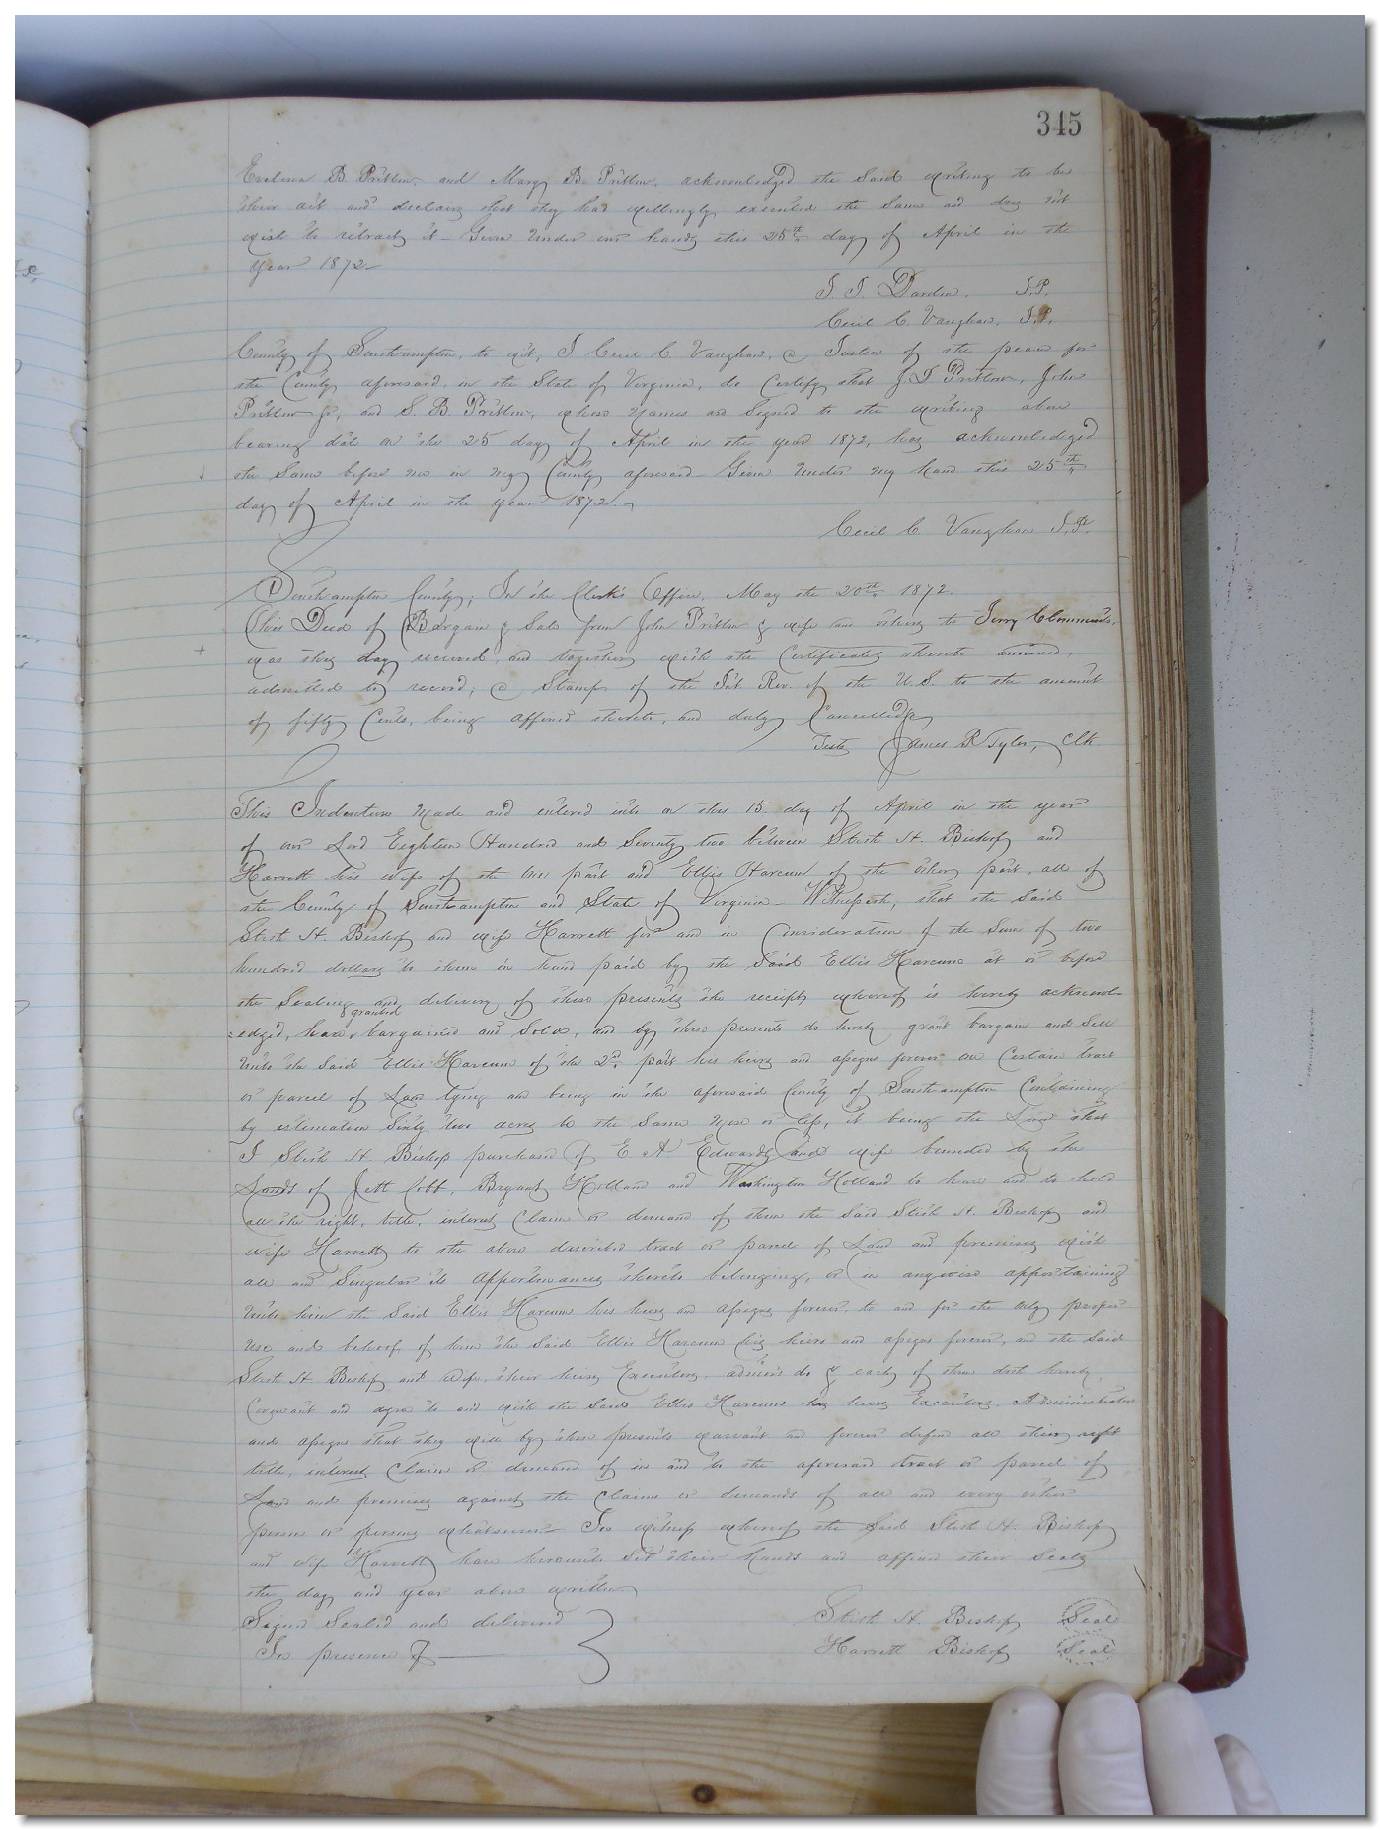 345
Evelina B. Pretlow, and Mary B. Pretlow, acknowledged the said writing to be
their act and declare that they had willingly executed the same and does not
wish to retract it – Given under our hands this 25th day of April in the
year 1872 –
J. J. Darden, J.P.
Cecil C. Vaughan, J.P.
County of Southampton, to wit, I Cecil C Vaughan, a Justice of the peace for
the County aforesaid, in the State of Virginia, do Certify that J. T Pretlow, John
Pretlow Jr, and S. B. Pretlow, whose names are signed to the writing above
bearing date on the 25 day of April in the year 1872, has acknowledged
the same before me in my County aforesaid Given under my hand this 25th
day of April in the year 1872 –
Cecil C. Vaughan J.P.
Southampton County; In the Clerk's Office, May the 20th 1872.
This Deed of Bargain & Sale from John Pretlow & wife and others to Jerry Clemmonds.
was this day received, and together with the Certificates thereto annexed,
admitted to record, a Stamp of the Int Rev. of the U. S. to the amount
of fifty Cents, being affixed thereto, and duly Cancelled
Teste James R Tyler, Clk
This Indenture made and entered into on this 15 day of April in the year
of our Lord Eighteen Hundred and Seventy two between Stith H. Bishop and
Harrett his wife of the one part and Ellis Harcum of the other part, all of
the County of Southampton and State of Virginia – Witnesseth, that the said
Stith H. Bishop and wife Harrett for and in Consideration of the Sum of two
hundred dollars to them in hand paid by the said Ellis Harcum at or before
the Sealing and delivery of these presents the receipt whereof is hereby acknowl-
=edged, have, & granted bargained and Sold, and by these presents do hereby grant bargain and Sell
unto the said Ellis Harcum of the 2d. part his heirs and assigns forever one Certain tract
or parcel of Land lying and being in the aforesaid County of Southampton Containing
by estimation Sixty two acres be the same more or less, it being the Land that
I Stith H Bishop purchased of E A Edwards and wife bounded by the
Lands of Jett Cobb, Bryant Holland and Washington Holland to have and to hold
all the right, title, interest Claim or demand of them the said Stith H. Bishop and
wife Harrett to the above described tract or parcel of Land and premises with
all and Singular its Appertenances thereto belonging, or in anywise appertaining
unto him the Said Ellis Harcum his heirs and assigns forever, to and for the only proper
use and behoof, of him the said Ellis Harcum his heirs and assigns forever, and the said
Stith H. Bishop and wife, their heirs Executors, admin's do & each of them doth hereby
Covenant and agree to and with the said Ellis Harcum his heirs Executors, Administrators
and assigns that they will by these presents warrant and forever defend all their right
title, interest Claim or demand of in and to the aforesaid tract or parcel of
Land and premises against the claims or demands of all and every other
person or persons whatsoever – In witness whereof the said Stith H. Bishop
and wife Harrett have hereunto Set their hands and affixed their Seals
the day and year above written
Signed Sealed and delivered
In presence of
Stith H. Bishop Seal
Harrett Bishop Seal